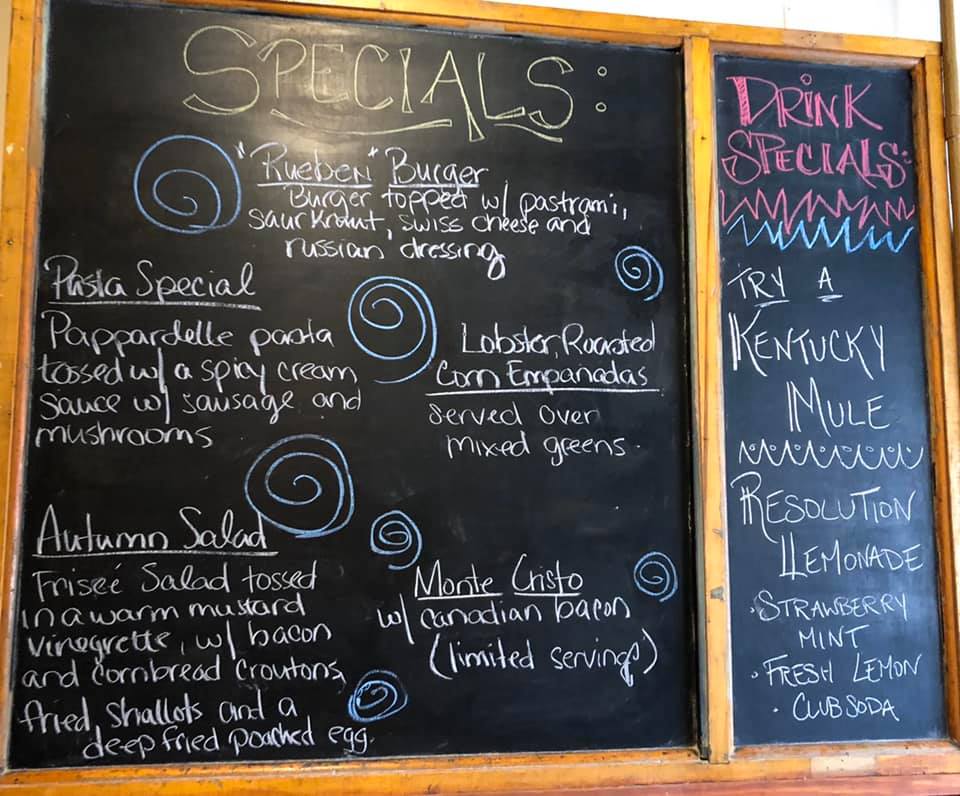 SPECIALS:
"Rueben" Burger
Burger topped w/ pastrami,
saurkraut, swiss cheese and
russian dressing
Pasta Special
Pappardelle pasta
tossed w/ a spicy cream
sauce w/ sausage and
mushrooms
Lobster, Roasted
Corn Empanadas
served over
mixed greens.
Autumn Salad
Friseé Salad tossed
in a warm mustard
vinegrette, w/ bacon
and cornbread croutons,
fried, shallots and a
deep fried poached egg.
Monte Cristo
w/ canadian bacon
(limited servings)
DRINK
SPECIALS:
TRY A
KENTUCKY
MULE
RESOLUTION
LLEMONADE
· STRAWBERRY
MINT
· FRESH LEMON
· CLUB SODA